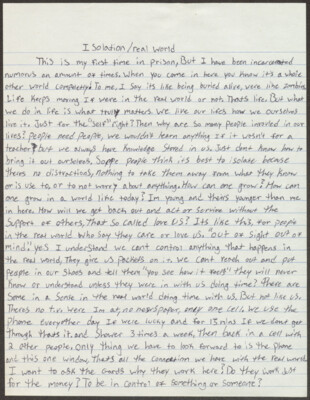 Isolation/real world
This is my first time in prison, But I have been incarcerated
numorus an amount of times. When you come in here you know it's a whole
other world completely. To me, I say its like being buried alive, were like zombies.
Life keeps moving If were in the real world or not. Thats life. But what
we do in life is what truly matters. We live our lifes how we ourselves
live it. Just for the "self" right? Then why are so many people involved in our
lives? People need people, we wouldn't learn anything if it wasn't for a
teacher, but we always have knowledge stored in us. Just dont know how to
bring it out ourselves. Some people think its best to isolate because
theres no distractions, nothing to take them away from what they know
or is use to, or to not worry about anything. How can one grow? How can
one grow in a world like today? Im young and thats younger than me
in here. How will we get back out and add or service without the
support of others, that so called love us? Its like this, for people
in the real world who say they care or love us. "Out of sight out of
mind," yes I understand we cant control anything that happens in
the real world. They give us packets on it. We cant reach out and put
people in our shoes and tell them "you see how it feels" they will never
know or understand unless they were in with us doing time? There are
some in a sense in the real world doing time with us. But not like us.
Theres no t.v. were Im at, no newspaper, only one cell. We use the
phone everyother day if were lucky and for 15 mins if we dont get
through thats it. and shower 3 times a week, Then back in a cell with
2 other people. Only thing we have to look forward to is the phone
and this one window. Thats all the connection we have with the real world.
I want to ask the gaurds why they work here? Do they work just
for the money? To be in control of something or someone?